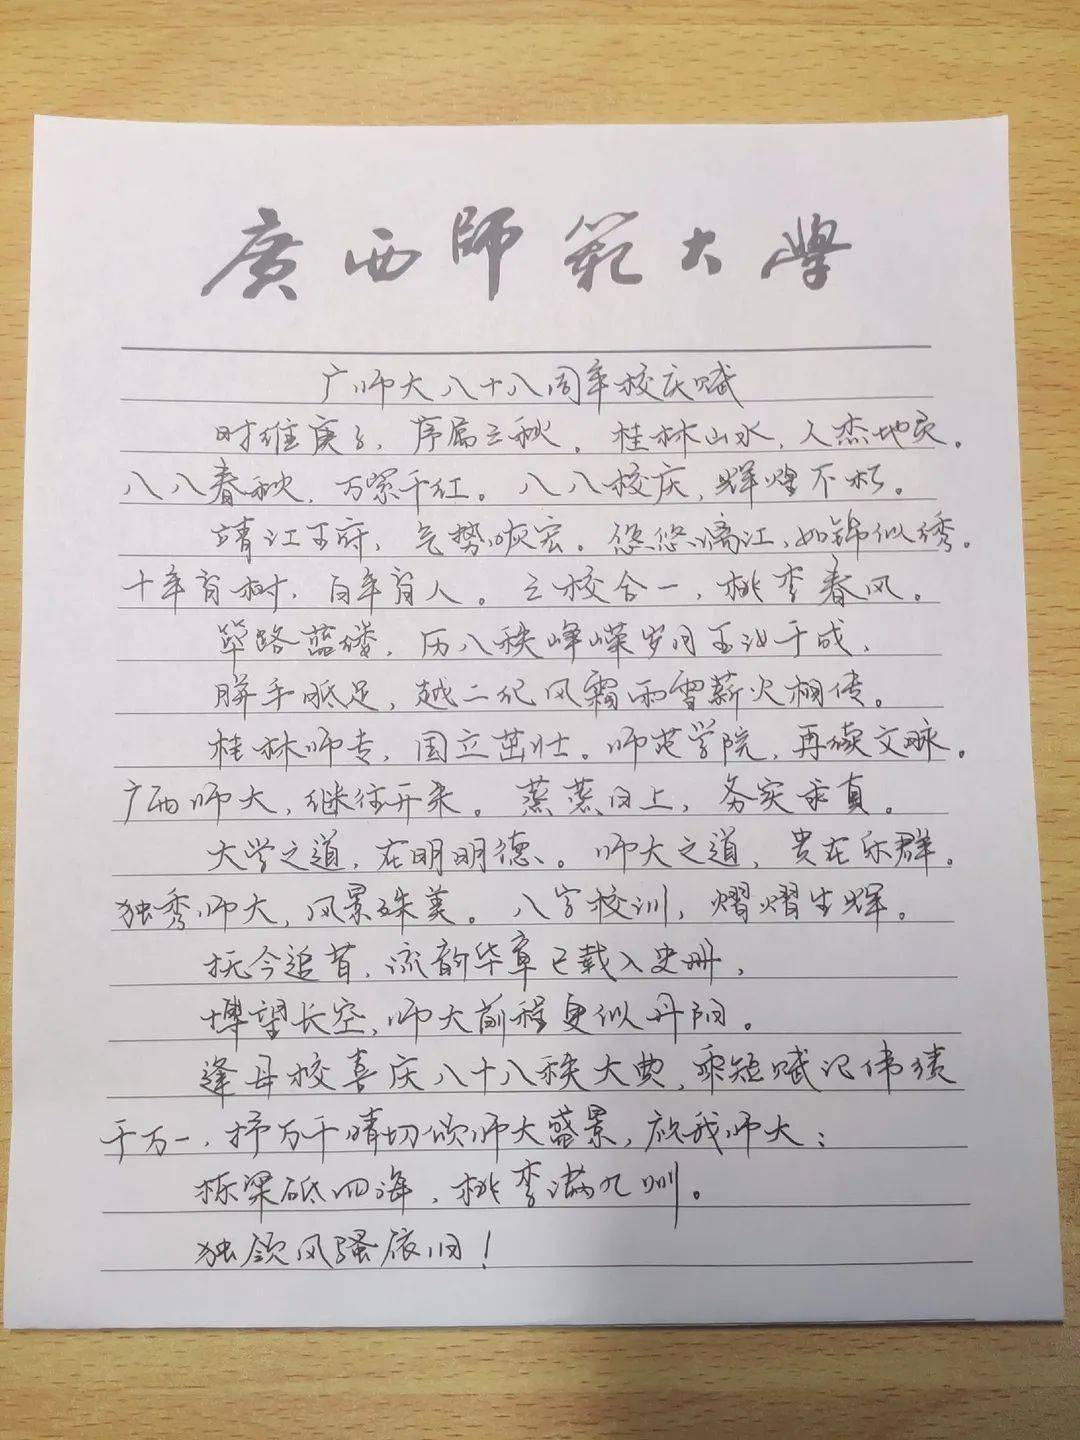 廣西師範大學
广师大八十八周年校庆赋
时维庚子，序属三秋。桂林山水，人杰地灵。
八八春秋，万紫千红。八八校庆，辉煌不朽。
靖江王府，气势恢宏。悠悠漓江，如锦似绣。
十年育树，百年育人。三校合一，桃李春风。
筚路蓝缕，历八秩峥嵘岁月玉汝于成，
胼手胝足，越二纪风霜雨雪薪火相传。
桂林师专，国立茁壮。师范学院，再续文脉。
广西师大，继往开来。蒸蒸日上，务实求真。
大学之道，在明明德。师大之道，贵在乐群。
独秀师大，风景殊美。八字校训，熠熠生辉。
抚今追昔，流韵华章已载入史册，
博望长空，师大前程更似丹阳。
逢母校喜庆八十八秩大典，乘短赋记伟绩
千万一，抒万千情切颂师大盛景，放我师大：
栋梁砥四海，桃李满九州。
独领风骚依旧！